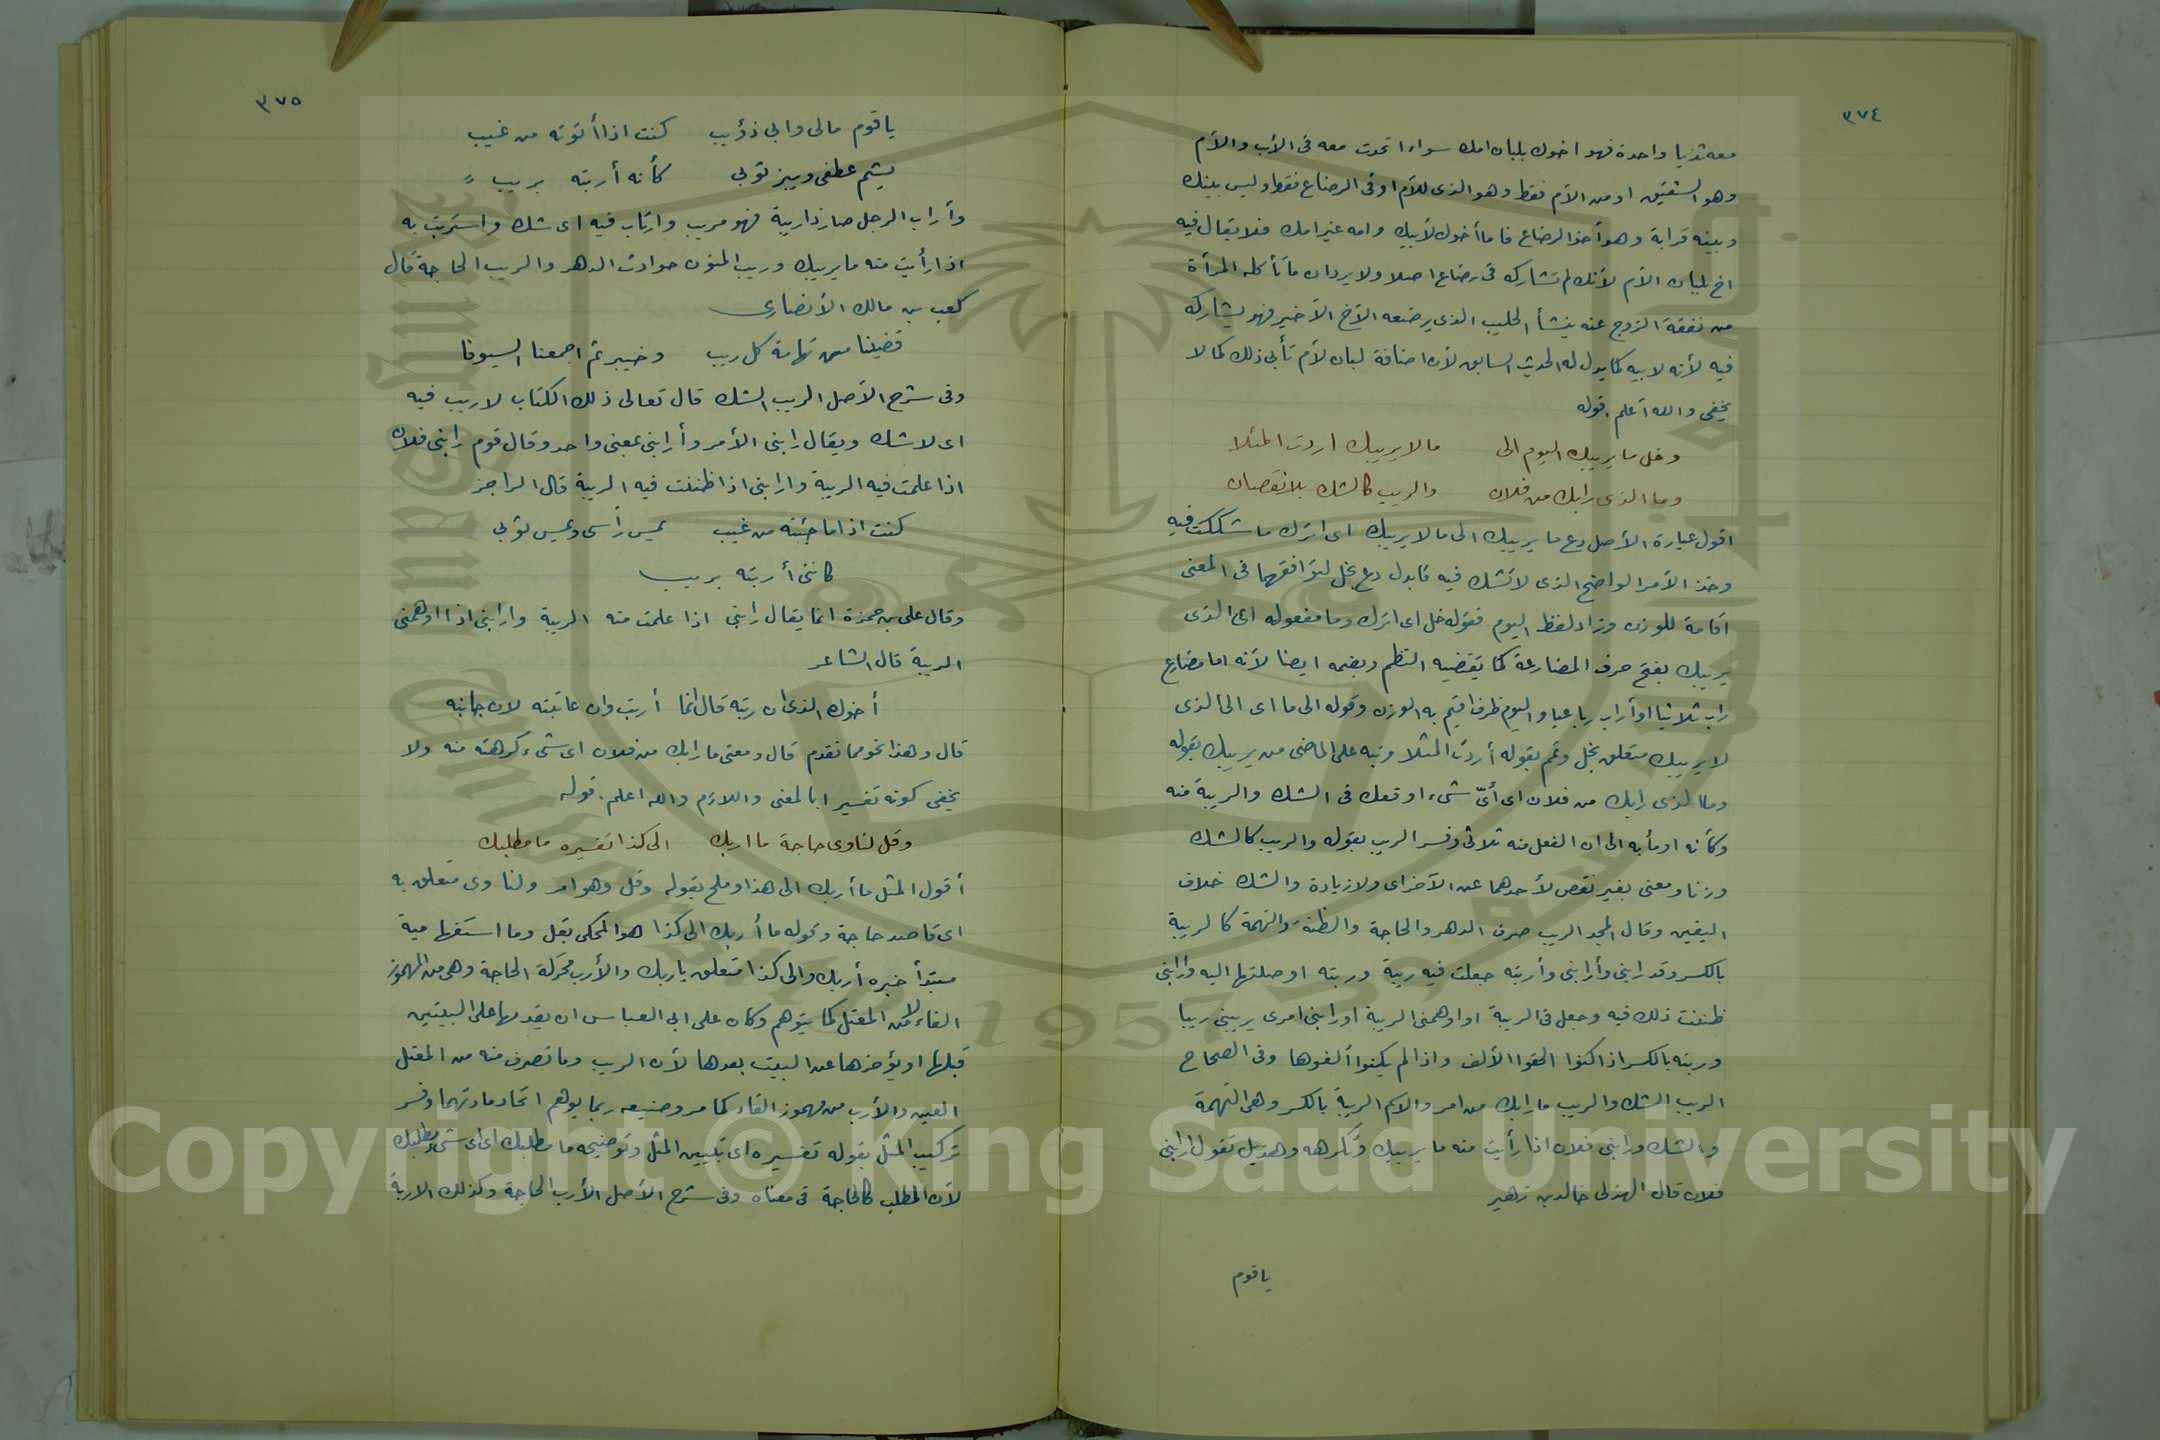 ٣٧٤
معه ثديا واحدة فهو اخوك بلبان امك سواء اتحدت معه فى الأب والأم
وهو الشقيق او من الأم فقط وهو الذى للأم اوفى الرضاع فقط وليس بينك
وبينه قرابة وهو أخو الرضاع فاما أخوك لأبيك وامه غير امك فلا يقال فيه
اخ بلبان الأم لأنك لم تشاركه فى رضاع اصلا ولا يرد ان ما تأكله المرأة
من نفقة الزوج عنه ينشأ الحليب الذى يرضعه الأخ الأخير فهو يشاركه
فيه لأنه لابيه كما يدل له الحديث السابق لأن اضافة لبان لأم تأبى ذلك كما لا
يخفى والله أعلم . قوله
وخل ما يريبك اليوم الى مالا يريبك اردت المثلا
وما الذى رابك من فلان والريب كالشك بلا نقصان
اقول عبارة الأصل دع ما يريبك الى مالا يريبك اى اترك ما شككت فيه
وخذ الأمر الواضح الذى لا تشك فيه فابدل دع بخل لتوافقهما فى المعنى
اقامة للوزن وزاد لفظ اليوم فقوله خل اى اترك وما مفعوله اى الذى
يريبك بفتح حرف المضارعة كما يقتضيه النظم وبضمه ايضا لأنه اما مضارع
راب ثلاثيا أو أراب رباعيا واليوم ظرف اقيم به الوزن وقوله الى ما اى الى الذى
لا يريبك متعلق بخل وتمم بقوله أردت المثلا ونبه على الماضى من يريبك بقوله
وما الذى رابك من فلان اى أىّ شىء اوقعك فى الشك والريبة منه
وكأنه اومأ به الى ان الفعل منه ثلاثى وفسر الريب بقوله والريب كالشك
وزنا ومعنى بغير نقص لأحدهما عن الآخر اى ولا زيادة والشك خلاف
اليقين وقال المجد الريب صرف الدهر والحاجة والظنة والتهمة كالريبة
بالكسر وقد رابنى وأرابنى وأربته جعلت فيه ريبة وربته اوصلتها اليه وأرابنى
ظننت ذلك فيه وجعل فى الريبة او اوهمنى الريبة او رابنى امرى يريبنى ريبا
وربته بالكسر اذا كنوا الحقوا الألف واذا لم يكنوا ألغوها وفى الصحاح
الريب الشك والريب ما رابك من امر والاسم الريبة بالكسر وهى التهمة
والشك ورابنى فلان اذا رأيت منه ما يريبك وتكرهه وهذيل تقول أرابنى
فلان قال الهذلى خالد بن زهير
ياقوم
٣٧٥
ياقوم مالى وابى ذؤيب كنت اذا أتوته من غيب
يشم عطفى ويبز ثوبى كأنه أربته بريب
وأراب الرجل صار ذا ريبة فهو مريب وارتاب فيه اى شك واستربت به
اذا رأيت منه ما يريبك وريب المنون حوادث الدهر والريب الحاجة قال
كعب بن مالك الأنصارى
قضينا من تهامة كل ريب وخيبر ثم اجمعنا السيوفا
وفى شرح الأصل الريب الشك قال تعالى ذلك الكتاب لا ريب فيه
اى لاشك ويقال رابنى الأمر وأرابنى بمعنى واحد وقال قوم رابنى فلان
اذا علمت فيه الريبة وارابنى اذا ظننت فيه الريبة قال الراجز
كنت اذا ما جئته من غيب يمس رأسى ويمس ثوبى
كاننى أربته بريب
وقال على بن حمزة انما يقال رابنى اذا علمت منه الريبة وارابنى اذا اوهمنى
الريبة قال الشاعر
أخوك الذى ان ربته قال انما أربت وان عاتبته لان جانبه
قال وهذا نحو مما تقدم قال ومعنى ما رابك من فلان اى شىء كرهته منه ولا
يخفى كونه تفسيرا بالمعنى واللازم والله اعلم . قوله
وقل لناوى حاجة ما اربك الى كذا تفسيره ما مطلبك
أقول المثل ما أربك الى هذا وملح بقوله وقل وهو امر ولناوى متعلق به
اى قاصد حاجة وقوله ما أربك الى كذا هو المحكى بقل وما استفهامية
مبتدأ خبره أربك والى كذا متعلق باربك والأرب محركة الحاجة وهى من المهموز
الفاء لا من المعتل كما يتوهم وكان على ابى العباس ان يقدمها على البيتين
قبلها او يؤخرها عن البيت بعدها لأن الريب وما تصرف منه من المعتل
العين والأرب من مهموز الفاء كما مر وصنيعه ربما يوهم اتحاد مادتهما وفسر
تركيب المثل بقوله تفسيره اى تبيين المثل وتوضيحه ما مطلبك اى اى شىء مطلبك
لأن المطلب كالحاجة فى معناه وفى شرح الأصل الأرب الحاجة وكذلك الاربة
1957
Copyright © King Saud University